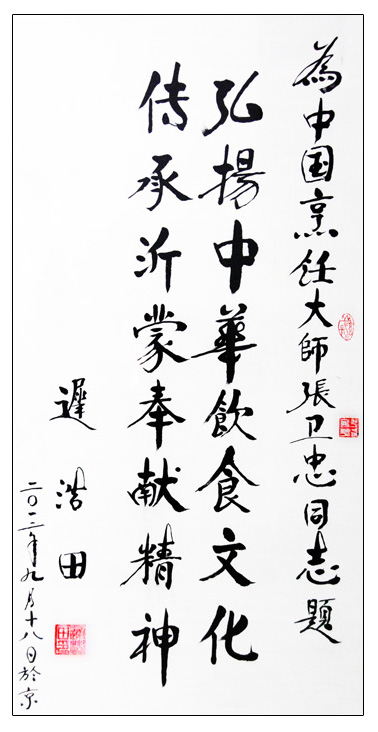 為中国烹飪大師張卫忠同志題
弘揚中華飲食文化
传承沂蒙奉献精神
遲浩田
二〇一二年九月十八日於京